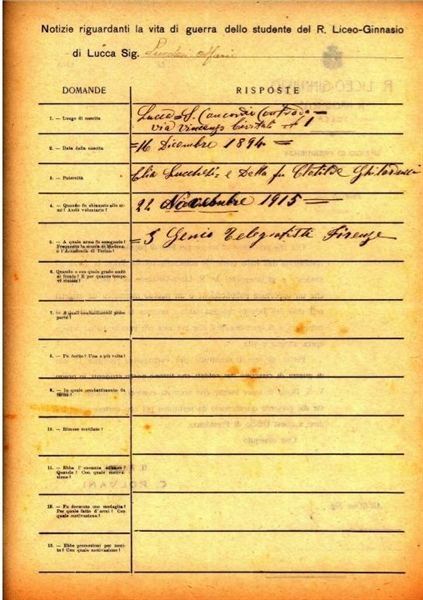 Notizie riguardanti la vita di guerra dello studente del R. Liceo-Ginnasio
di Lucca Sig.
DOMANDE
RISPOSTE
1. — Luogo di nascita
Lucca S. Concordio Contrada
via Vincenzo Civitali n 1
2. — Data della nascita
=16 Dicembre 1894=
3. — Paternità
Elia Lucchesi e Della fu Clotilde
4. — Quando fu chiamato alle armi? Andò volontario?
22 Novembre 1915=
5. — A quale arma fu assegnato?
Frequentò la scuola di Modena
o l'Accademia di Torino?
=3 Genio Telegrafisti Firenze
6. — Quando e con quale grado andò al fronte? E per quanto tempo vi rimase?
7. — A quali combattimenti prese
parte?
8. — Fu ferito? Una o più volte?
9. — In quale combattimento fu
ferito?
10. — Rimase mutilato?
11. — Ebbe l'encomio solenne?
Quando? Con quale motivazione?
12. — Fu decorato con medaglia?
Per quale fatto d'armi? Con
quale motivazione?
13. — Ebbe promozioni per merito? Con quale motivazione?